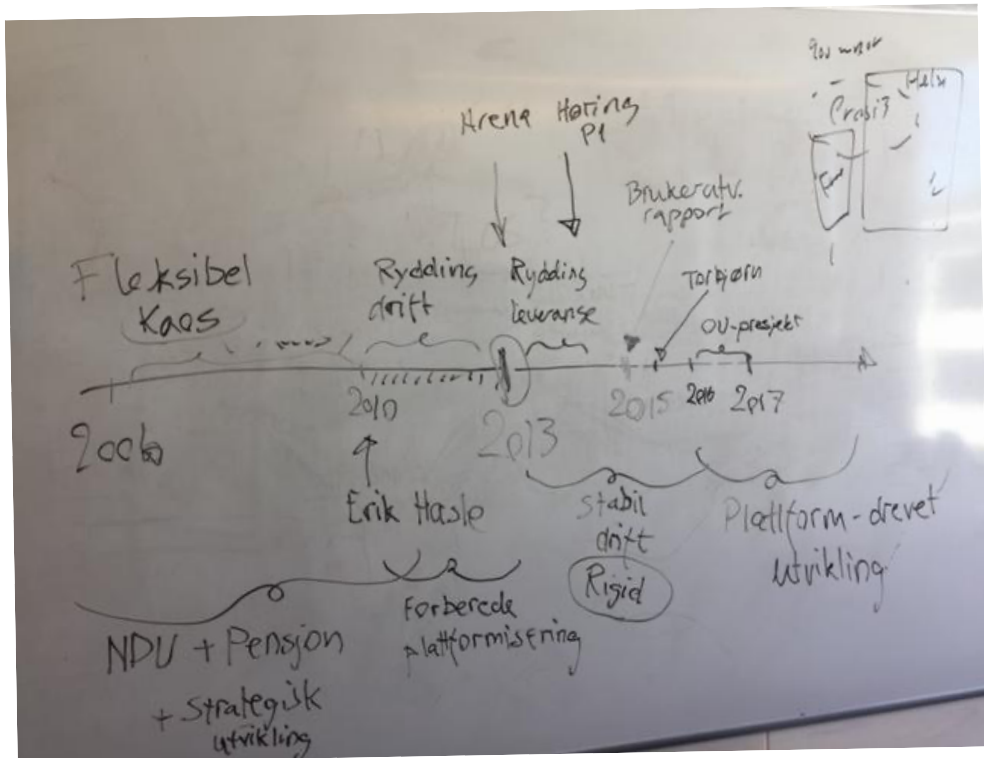 Arena Høring
P1
Brukerutv.
rapport
Fleksibel
Kaos
Rydding
drift
Rydding
leveranse
Torbjørn
OU-prosjekt
2006
2010
2013
2015
2016
2017
Erik Hasle
Stabil
drift
Rigid
Plattform-drevet
utvikling
Forberede
plattformisering
NDU + Pensjon
+ Strategisk
utvikling